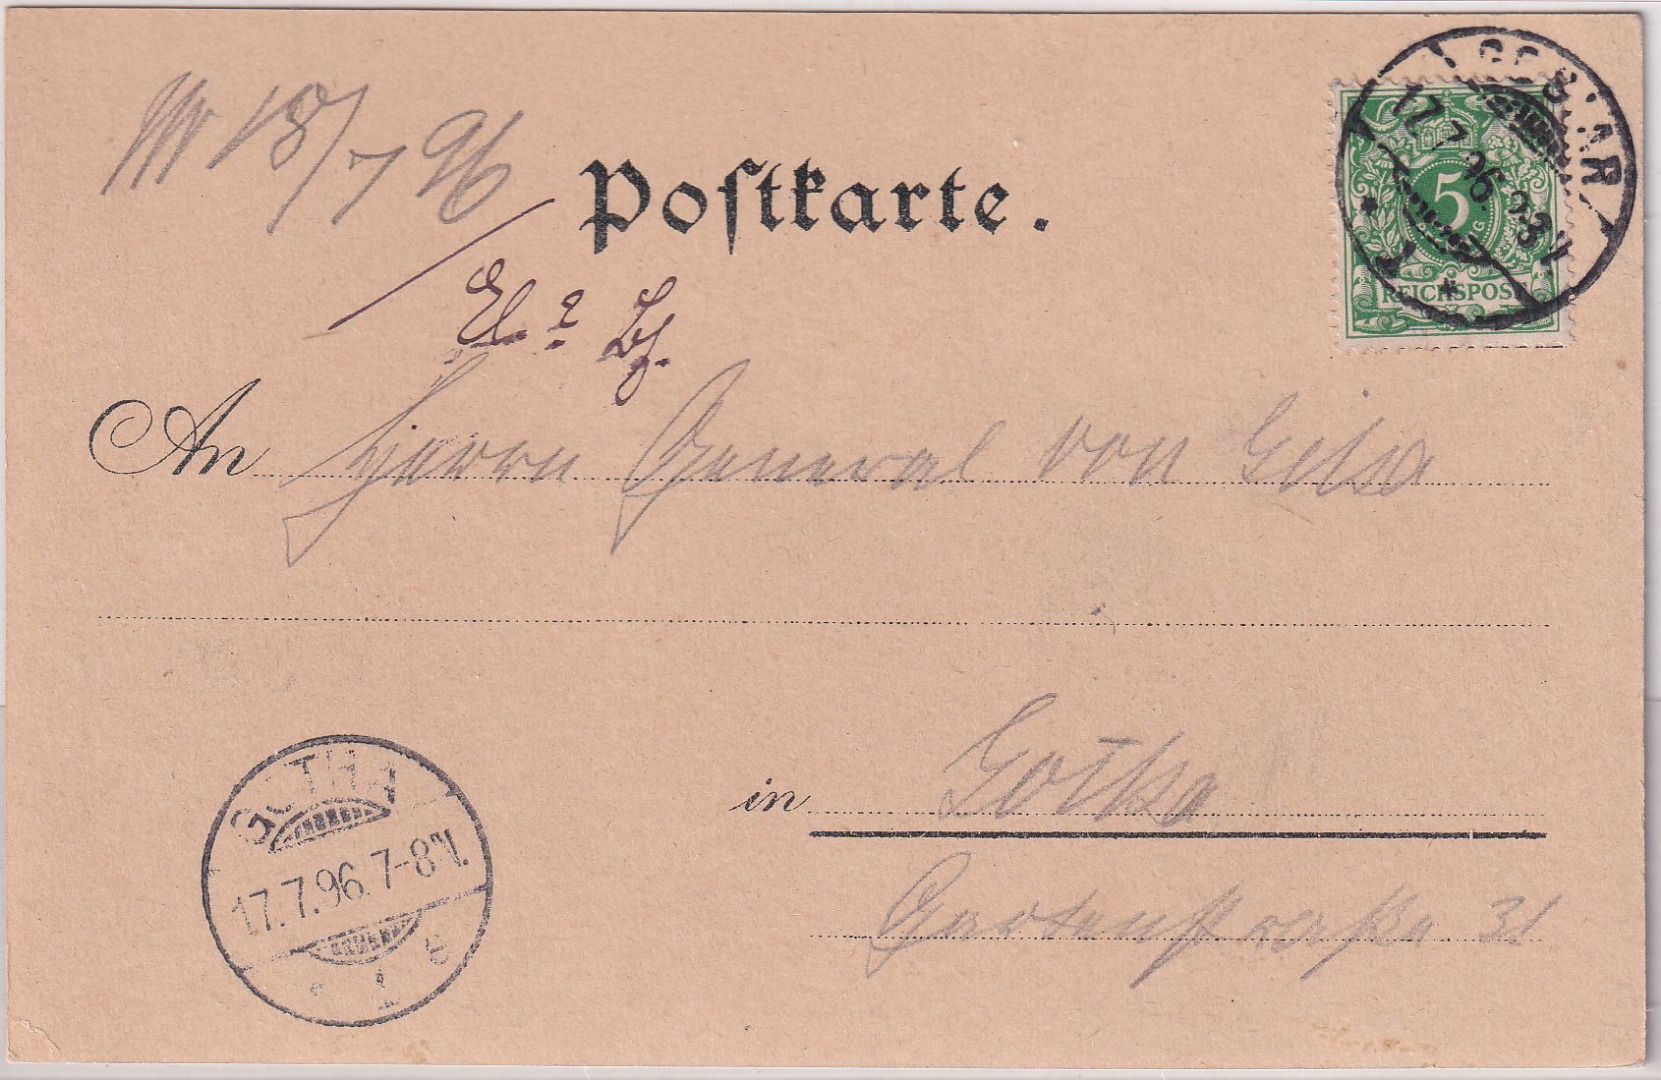 18/7 96
Postkarte.
GOSLAR
17.7.96
5
REICHSPOST
An Herrn General von Geisa
in Gotha
Gartenstraße 31
GOTHA
17.7.96. 7-8V.
1